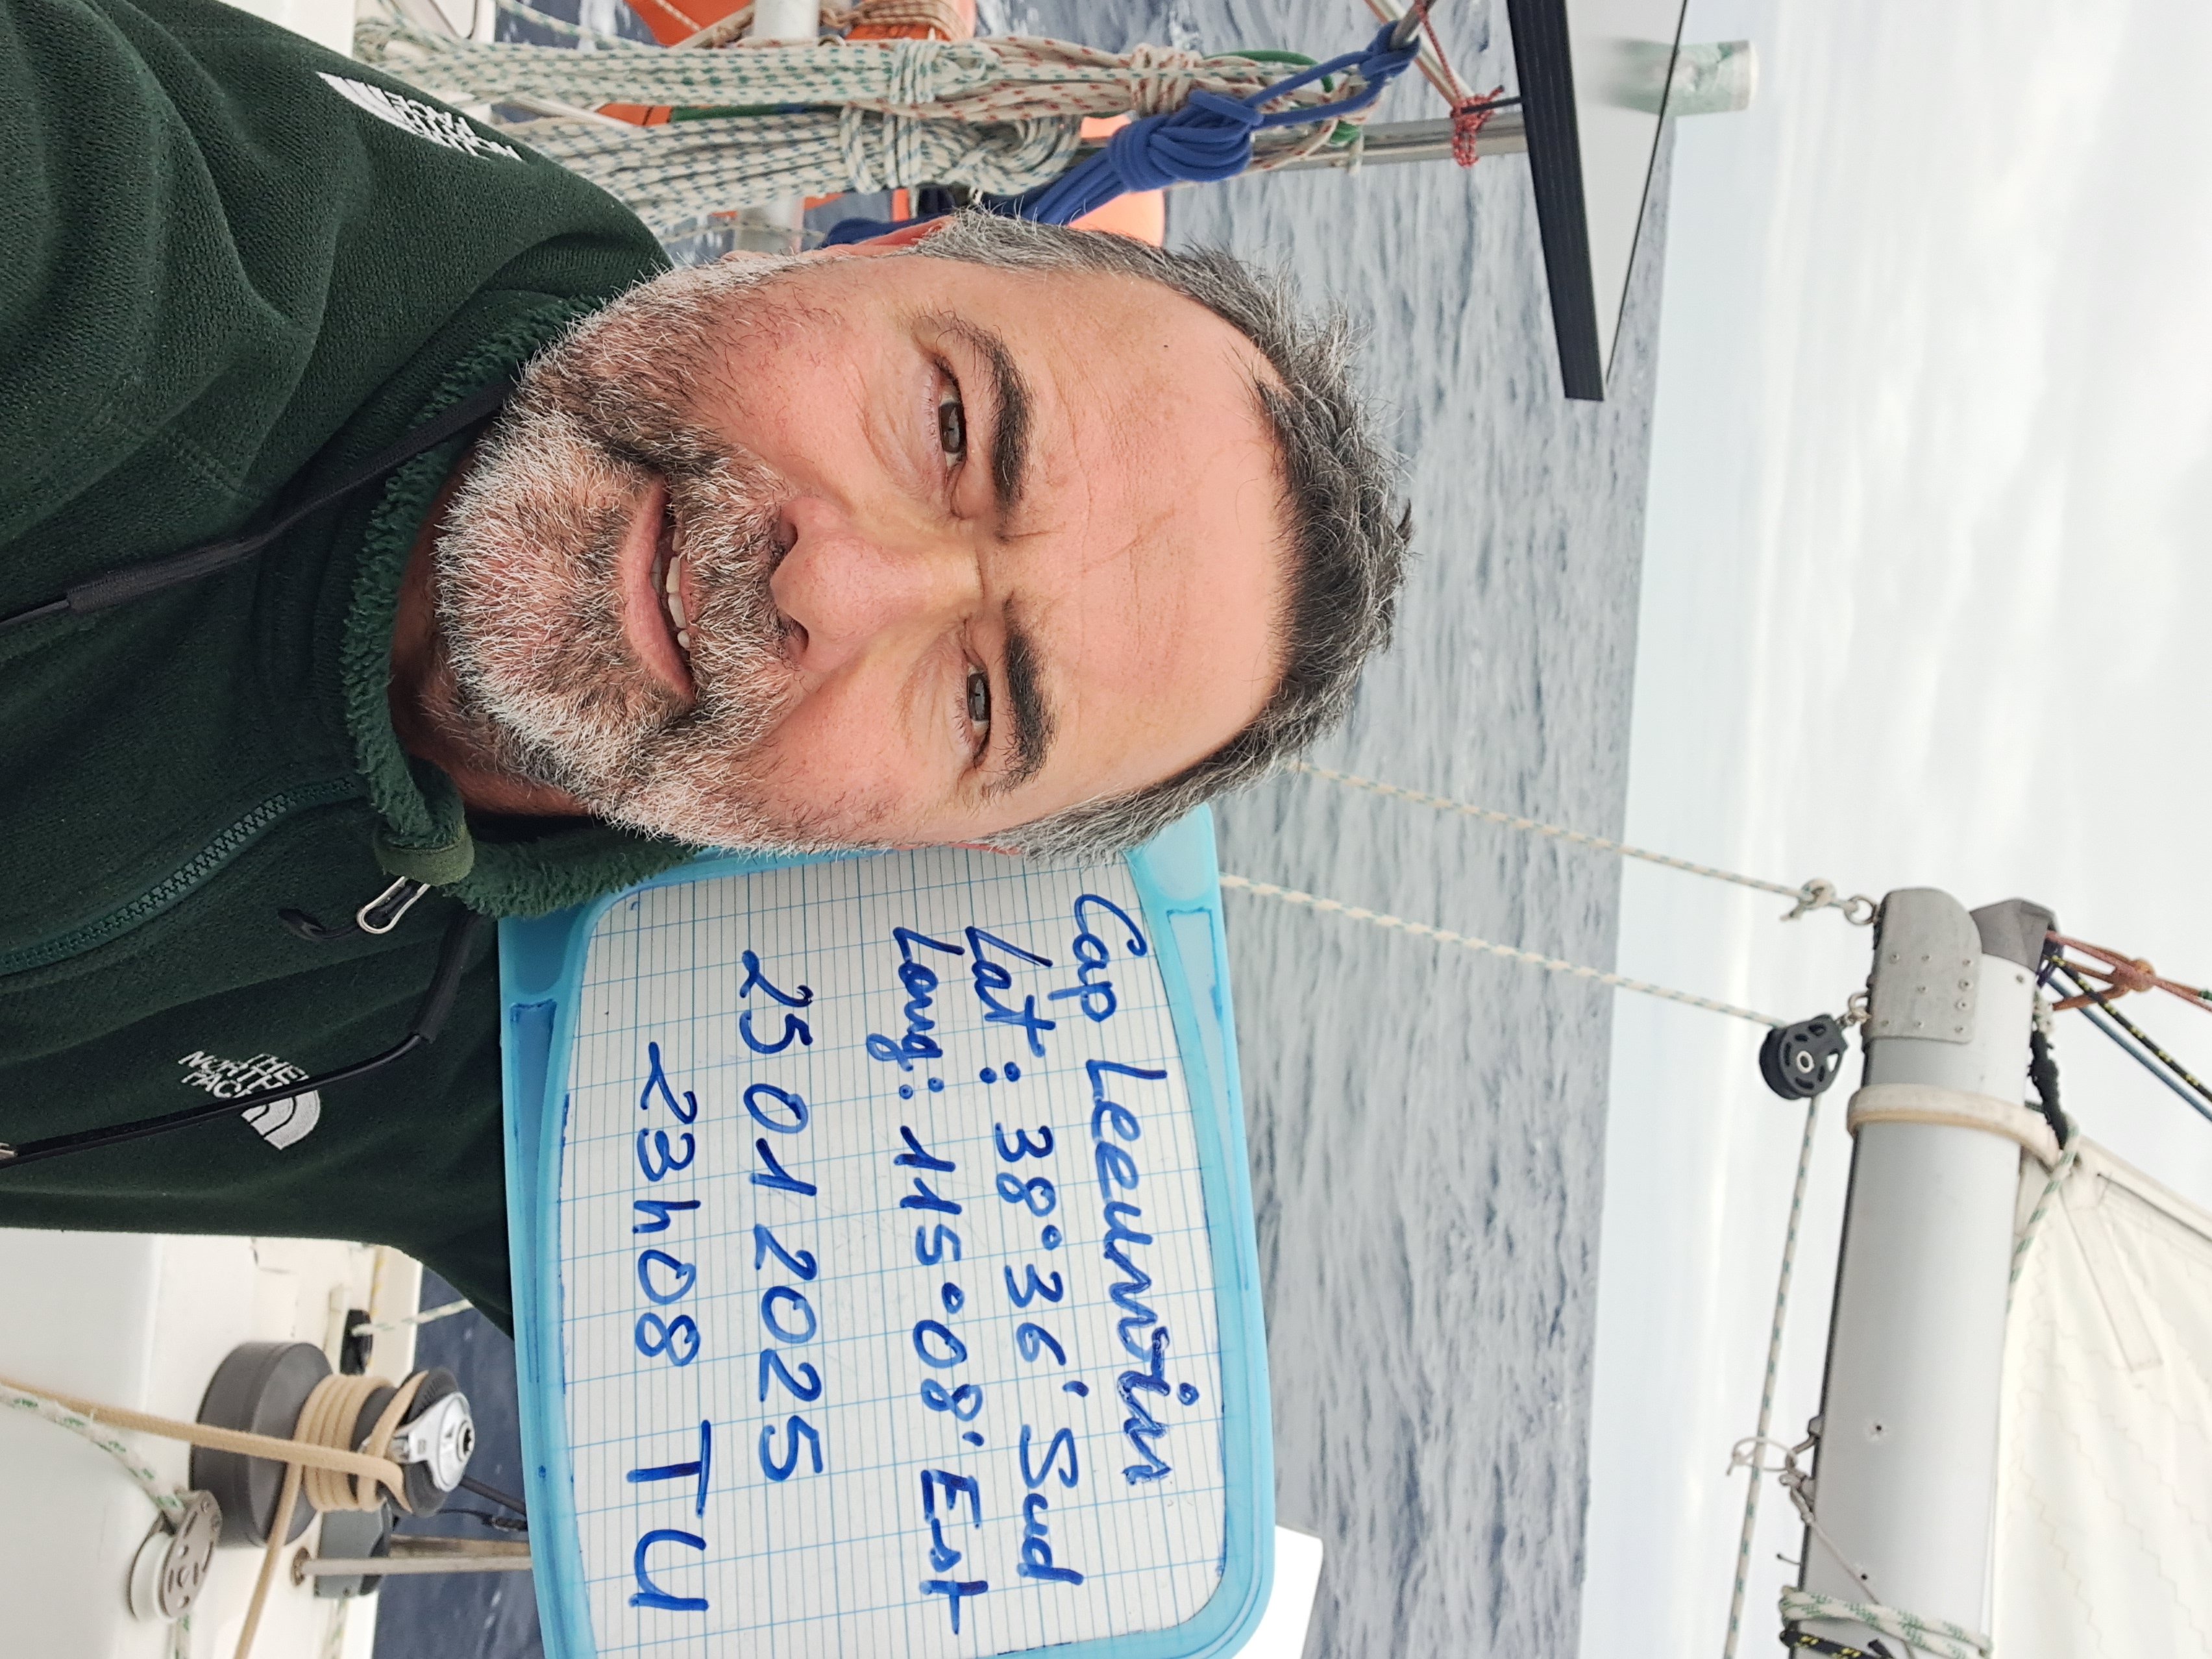 Cap Leeuwin
Lat: 38°36' Sud
Long: 115°08' Est
25 01 2025
23h08 TU
THE
NORTH
FACE
THE
NORTH
FACE